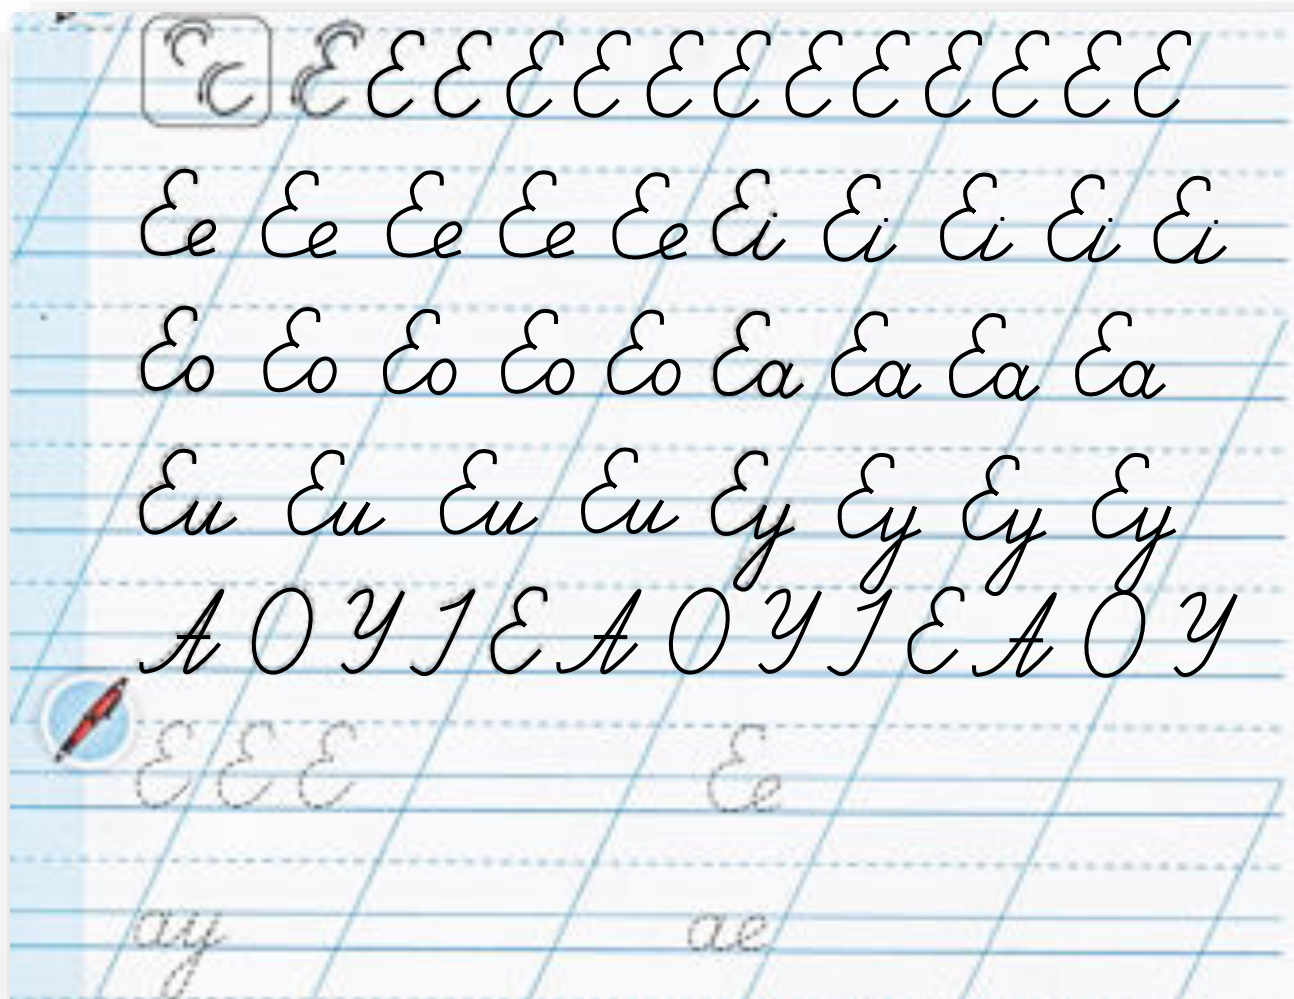 Е Е Е Е Е Е Е Е Е Е Е Е Е
Ее Ее Ее Ее Ее Еі Еі Еі Еі Еі
Ео Ео Ео Ео Ео Еа Еа Еа Еа
Еи Еи Еи Еи Еу Еу Еу Еу
А О У І Е А О У І Е А О У
Е Е Е Ее
ау ае